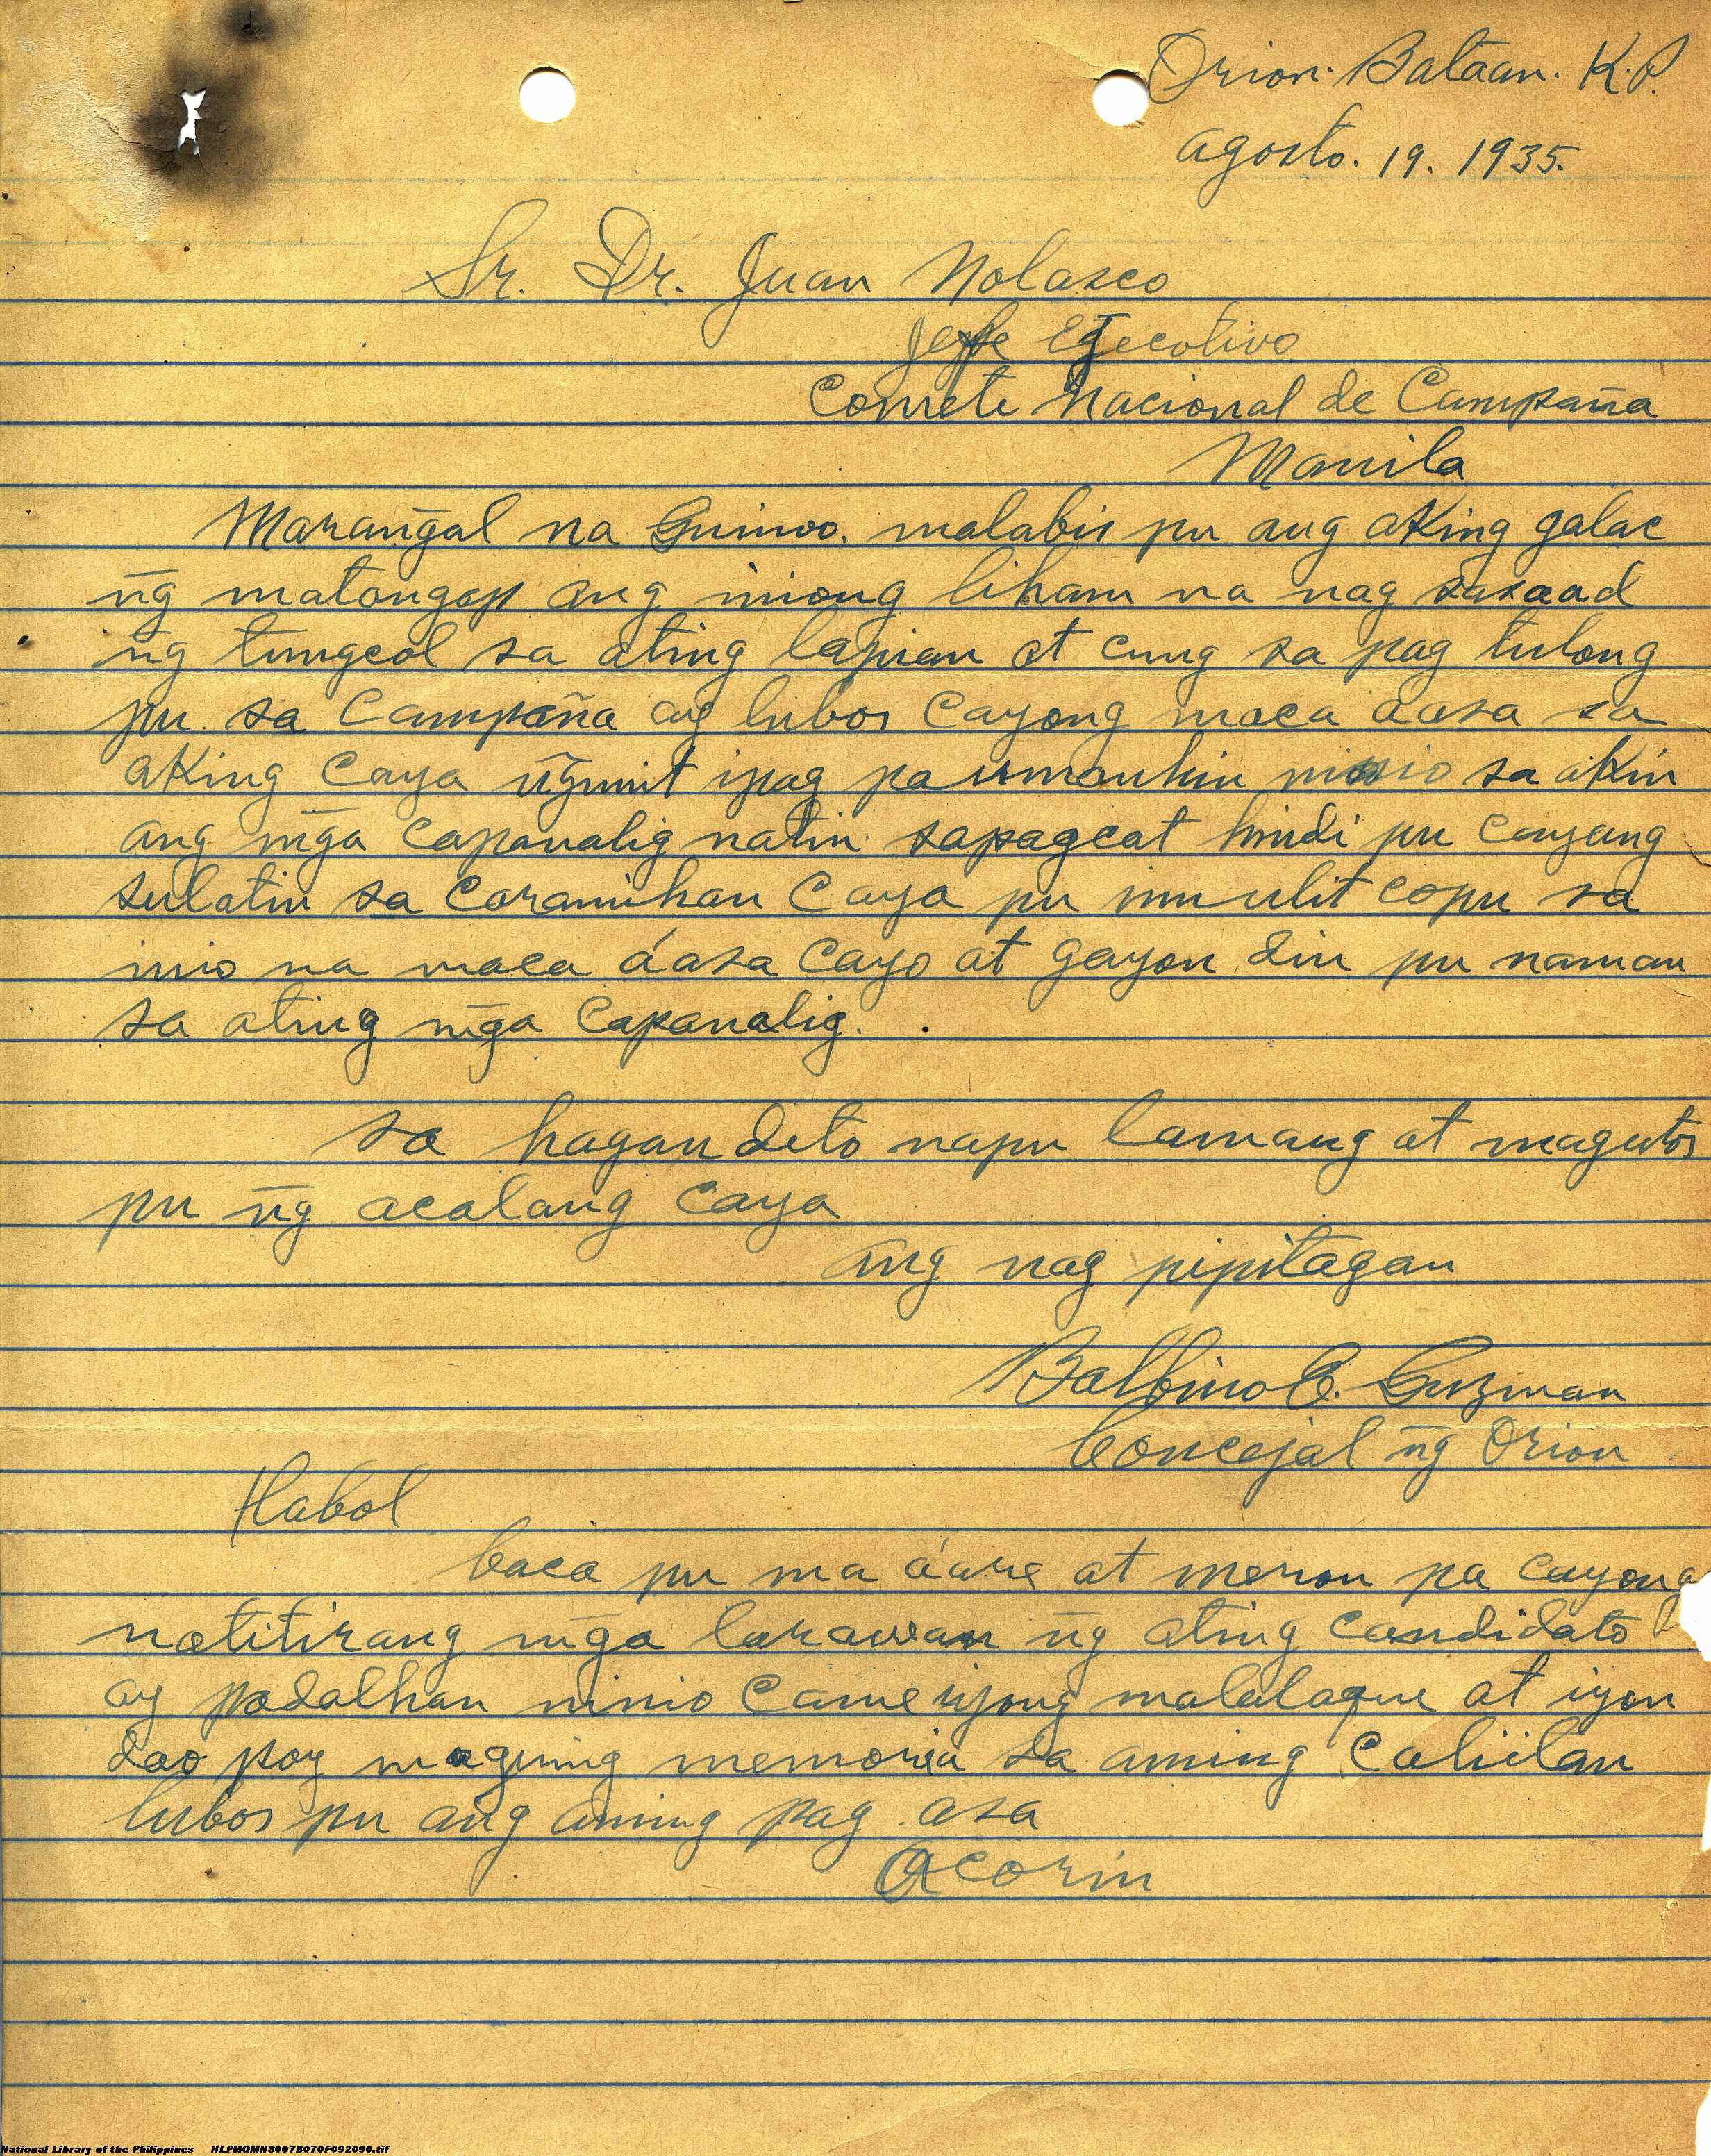 Orion. Bataan. K.P.
agosto. 19. 1935.
Sr. Dr. Juan Nolasco
Jefe Ejecotivo
Comete Nacional de Campaña
Manila
Marang̃al na Guinoo. malabis pu ang aking galac
n̄g matangap ang iniong liham na nag sasaad
n̄g tungcol sa ating lapian at cung sa pag tulong
pu. sa Campaña ay lubos Cayong maca aasa sa
aking Caya n̄gunit ipag paumanhin ninio sa akin
ang mg̃a Capanalig natin. sapagcat hindi pu cayang
sulatin sa Caramihan Caya pu inuulit copu sa
inio na maca áasa Cayo at gayon din pu naman
sa ating mg̃a Capanalig.
Sa hagan deto napu lamang at magutos
pu n̄g acalang Caya
ang nag pipitagan
Balbino C. Guzman
Concejal n̄g Orion
Habol
baca pu ma áare at meron pa cayong
natitirang mg̃a larawan n̄g ating Candidato
ay padalhan ninio Came iyong malalaque at iyon
dao poy maguing memoria sa aming Caliilan
lubos pu ang aming pag. asa
Acorin
National Library of the Philippines NLPMQMNS007B070F092090.tif